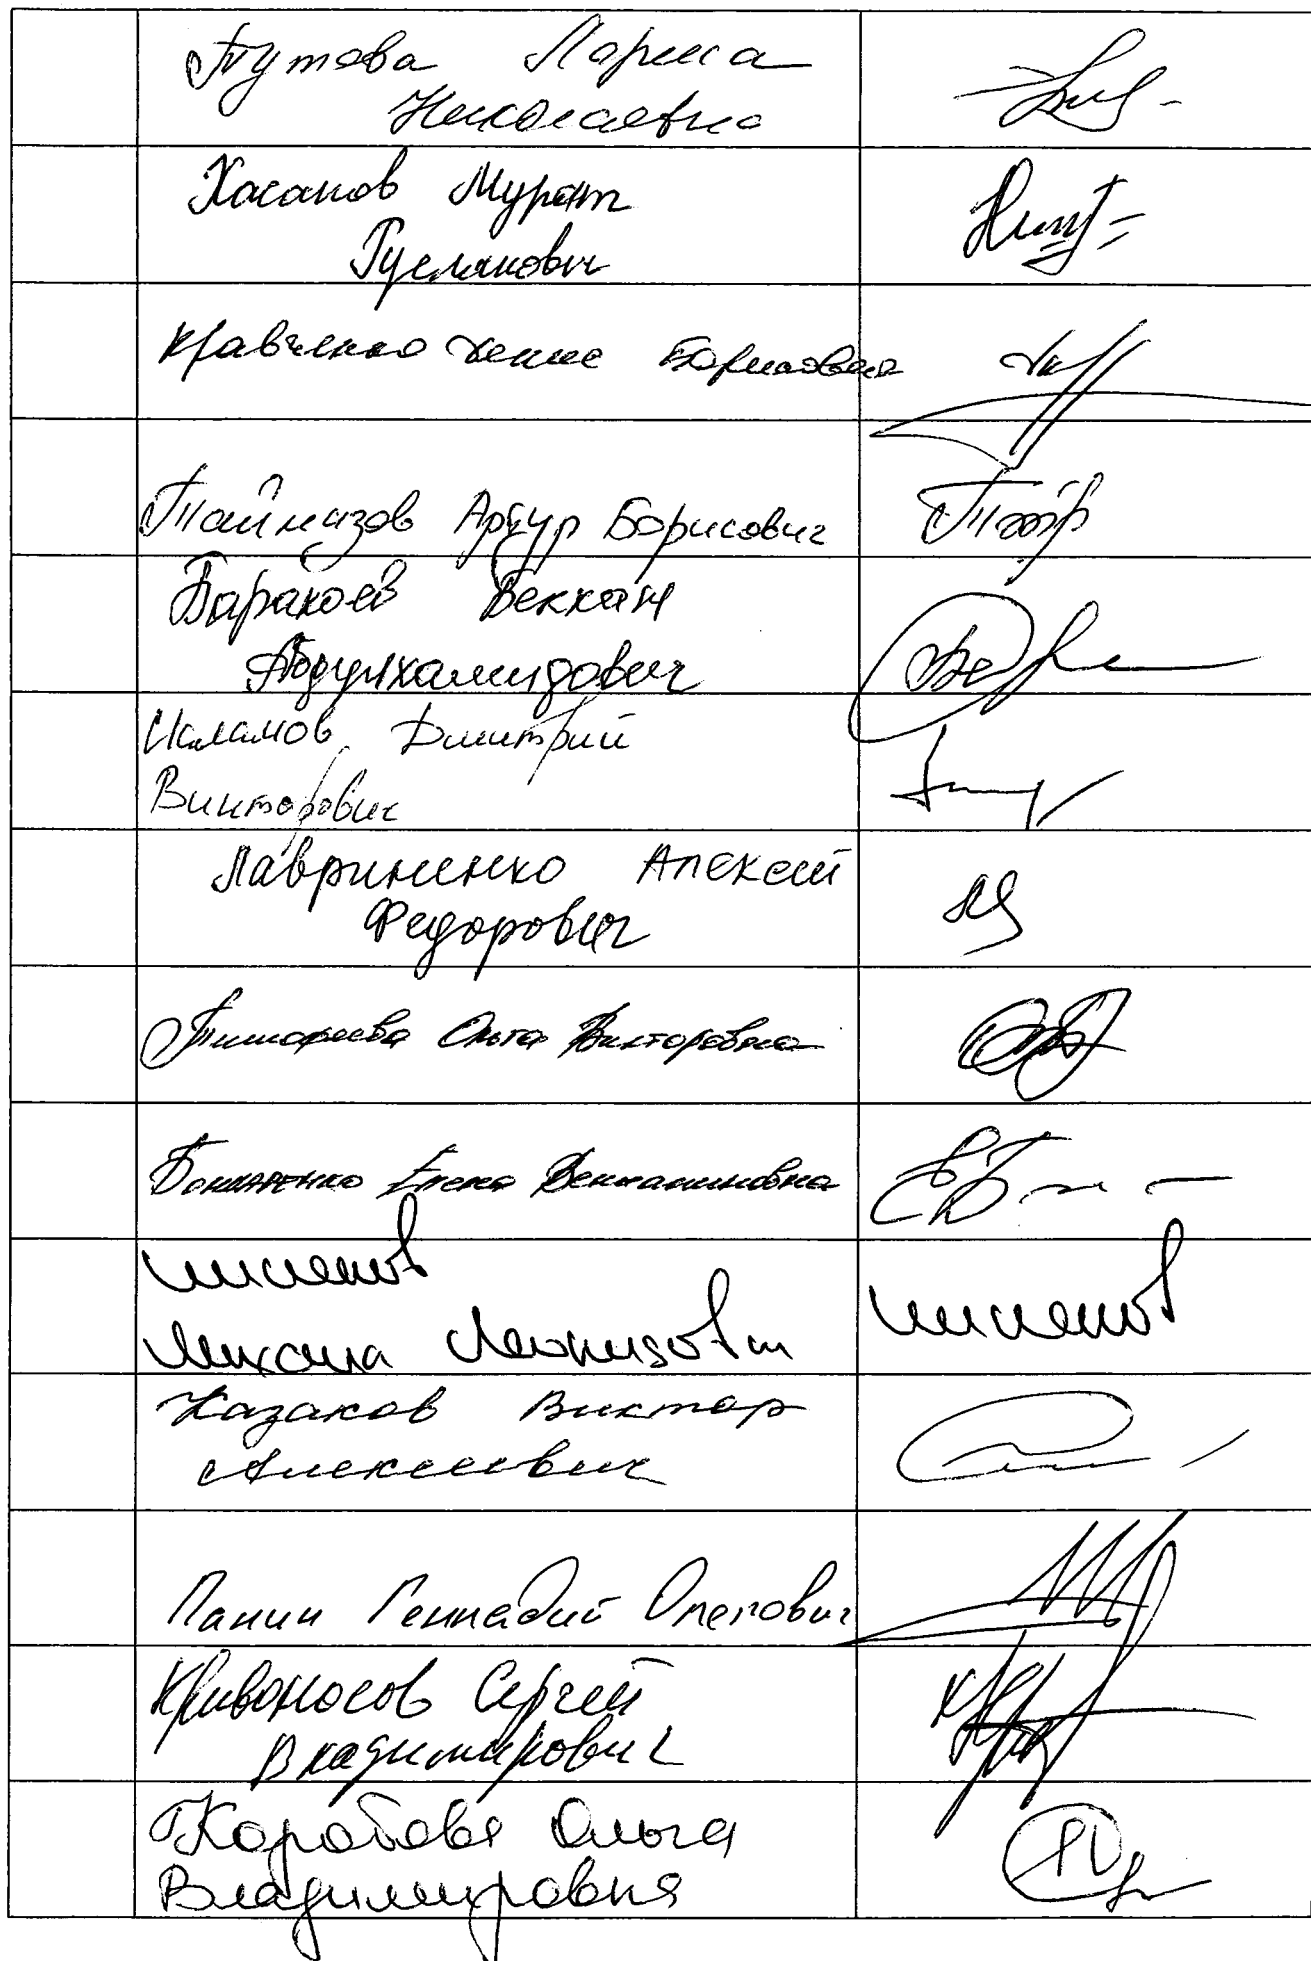 Тутова Лариса
Николаевна
Хасанов Мурат
Русланович
Кравченко Денис Борисович
Таймазов Артур Борисович
Барахоев Бекхан
Абдулхамидович
Исламов Дмитрий
Викторович
Лавриненко Алексей
Федорович
Тимофеева Ольга Викторовна
Бондаренко Елена Вениаминовна
Шишканов
Михаил Леонидович
Казаков Виктор
Алексеевич
Панин Геннадий Олегович
Кривоносов Сергей
Владимирович
Коробова Ольга
Владимировна